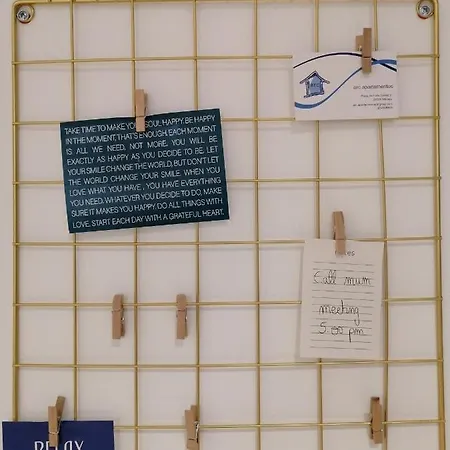 TAKE TIME TO MAKE YOUR SOUL HAPPY. BE HAPPY
IN THE MOMENT, THAT'S ENOUGH. EACH MOMENT
IS ALL WE NEED, NOT MORE. YOU WILL BE
EXACTLY AS HAPPY AS YOU DECIDE TO BE. LET
YOUR SMILE CHANGE THE WORLD, BUT DON'T LET
THE WORLD CHANGE YOUR SMILE. WHEN YOU
LOVE WHAT YOU HAVE, YOU HAVE EVERYTHING
YOU NEED. WHATEVER YOU DECIDE TO DO, MAKE
SURE IT MAKES YOU HAPPY. DO ALL THINGS WITH
LOVE. START EACH DAY WITH A GRATEFUL HEART.
Call mum
meeting
5 00 pm
RELAX